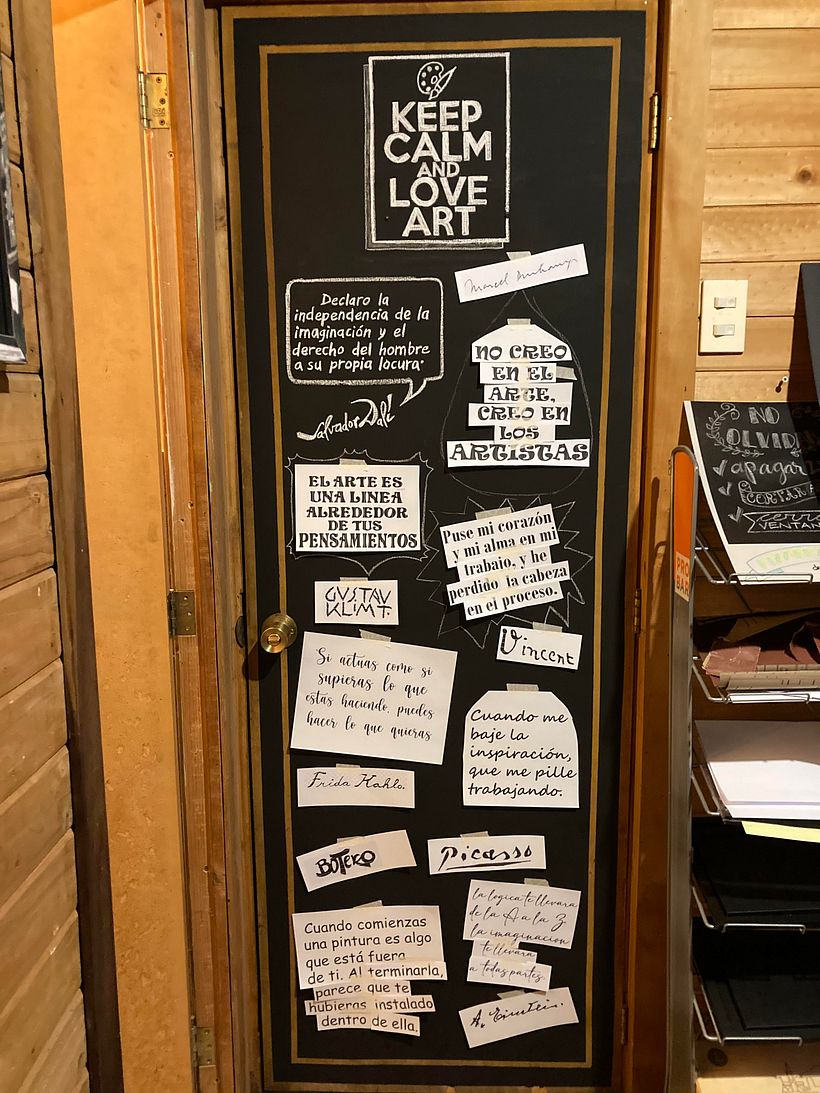 KEEP
CALM
AND
LOVE
ART
Marcel Duchamp
Declaro la
independencia de la
imaginación y el
derecho del hombre
a su propia locura.
Salvador Dalí
NO CREO
EN EL
ARTE,
CREO EN
LOS
ARTISTAS
EL ARTE ES
UNA LINEA
ALREDEDOR
DE TUS
PENSAMIENTOS
GUSTAV
KLIMT.
Puse mi corazón
y mi alma en mi
trabajo, y he
perdido la cabeza
en el proceso.
Vincent
Si actúas como si
supieras lo que
estás haciendo, puedes
hacer lo que quieras
Frida Kahlo.
Cuando me
baje la
inspiración,
que me pille
trabajando.
Picasso
BOTERO
Cuando comienzas
una pintura es algo
que está fuera
de ti. Al terminarla,
parece que te
hubieras instalado
dentro de ella.
la logica te llevara
de la A a la Z
la imaginacion
te llevara
a todas partes.
A. Einstein.
NO
OLVID
apagar
CORTAR
cerrar
VENTAN
PRO
BAR